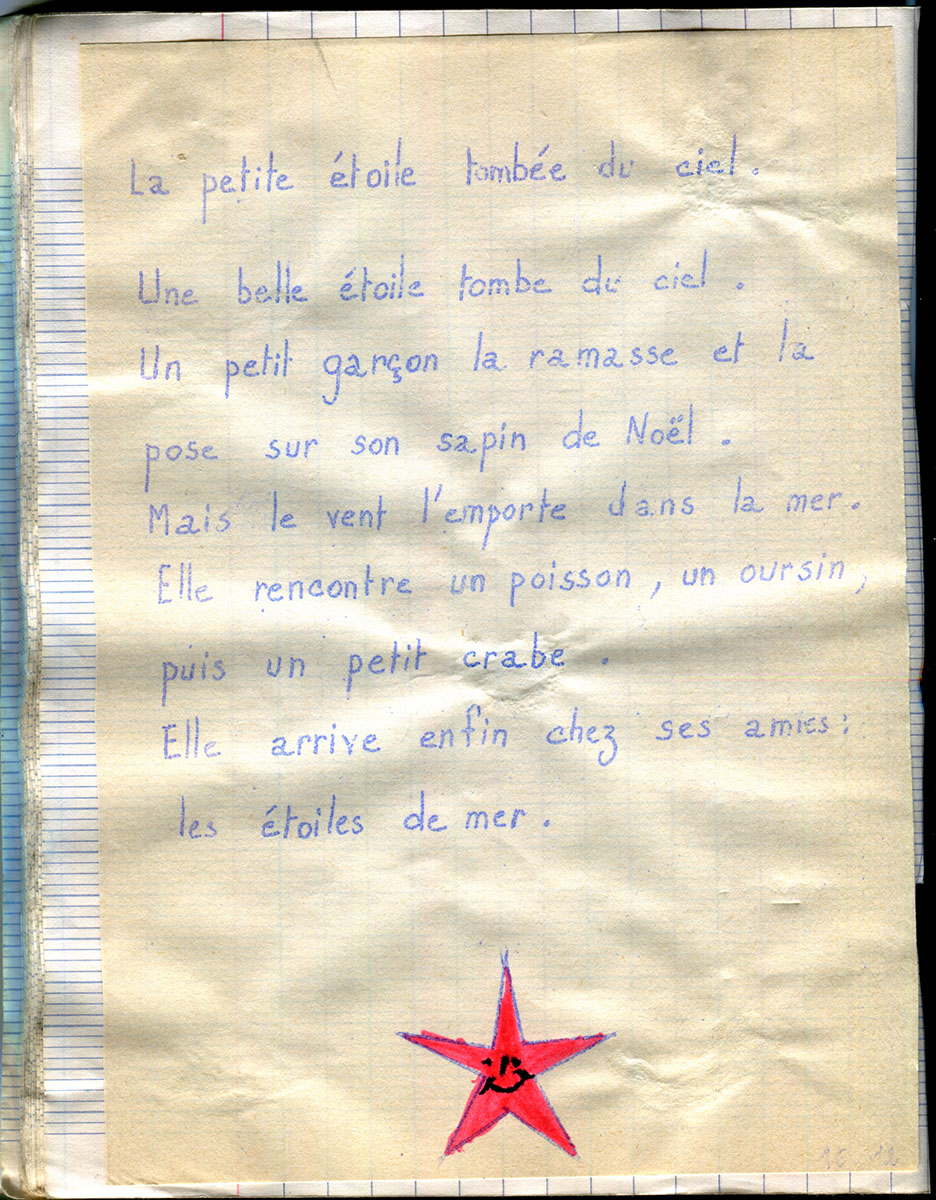 La petite étoile tombée du ciel.
Une belle étoile tombe du ciel.
Un petit garçon la ramasse et la
pose sur son sapin de Noël.
Mais le vent l'emporte dans la mer.
Elle rencontre un poisson, un oursin,
puis un petit crabe.
Elle arrive enfin chez ses amies:
les étoiles de mer.